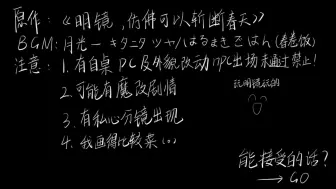 原作：《明镜，何件可以斩断春天》
BGM：月光－キタニタツヤ/はるまきごはん (春卷饭)
注意：1.有自桌PC及外貌改动 npc出场 未通过禁止！
玩明镜玩的
2.可能有魔改剧情
3.有私心分镜出现
4.我画得比较菜
能接受的话？
→GO